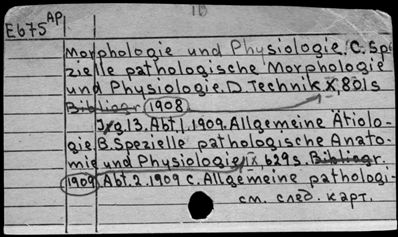 10
E675 AP
Morphologie und Physiologie. C. Spe
zielle pathologische Morphologie
und Physiologie. D. Technik X, 801 s
Bibliogr. 1908
Jg. 13. Abt. 1. 1909. Allgemeine Ätiolo-
gie. B. Spezielle pathologische Anato-
mie und Physiologie IX, 629 s. Bibliogr.
1909 Abt. 2. 1909 C. Allgemeine pathologi-
см. след. карт.